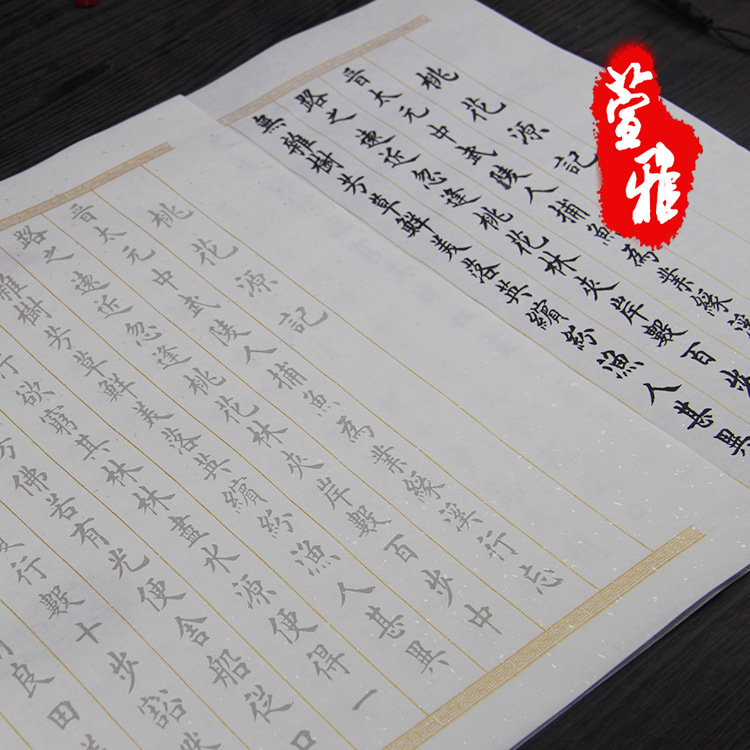 萱雅
桃花源記
晉太元中武陵人捕魚為業緣溪
路之遠近忽逢桃花林夾岸數百步
無雜樹芳草鮮美落英繽紛漁人甚異
桃花源記
晉太元中武陵人捕魚為業緣溪行忘
路之遠近忽逢桃花林夾岸數百步中
雜樹芳草鮮美落英繽紛漁人甚異
行欲窮其林林盡水源便得一
佛若有光便舍船從口
行數十步豁然
良田